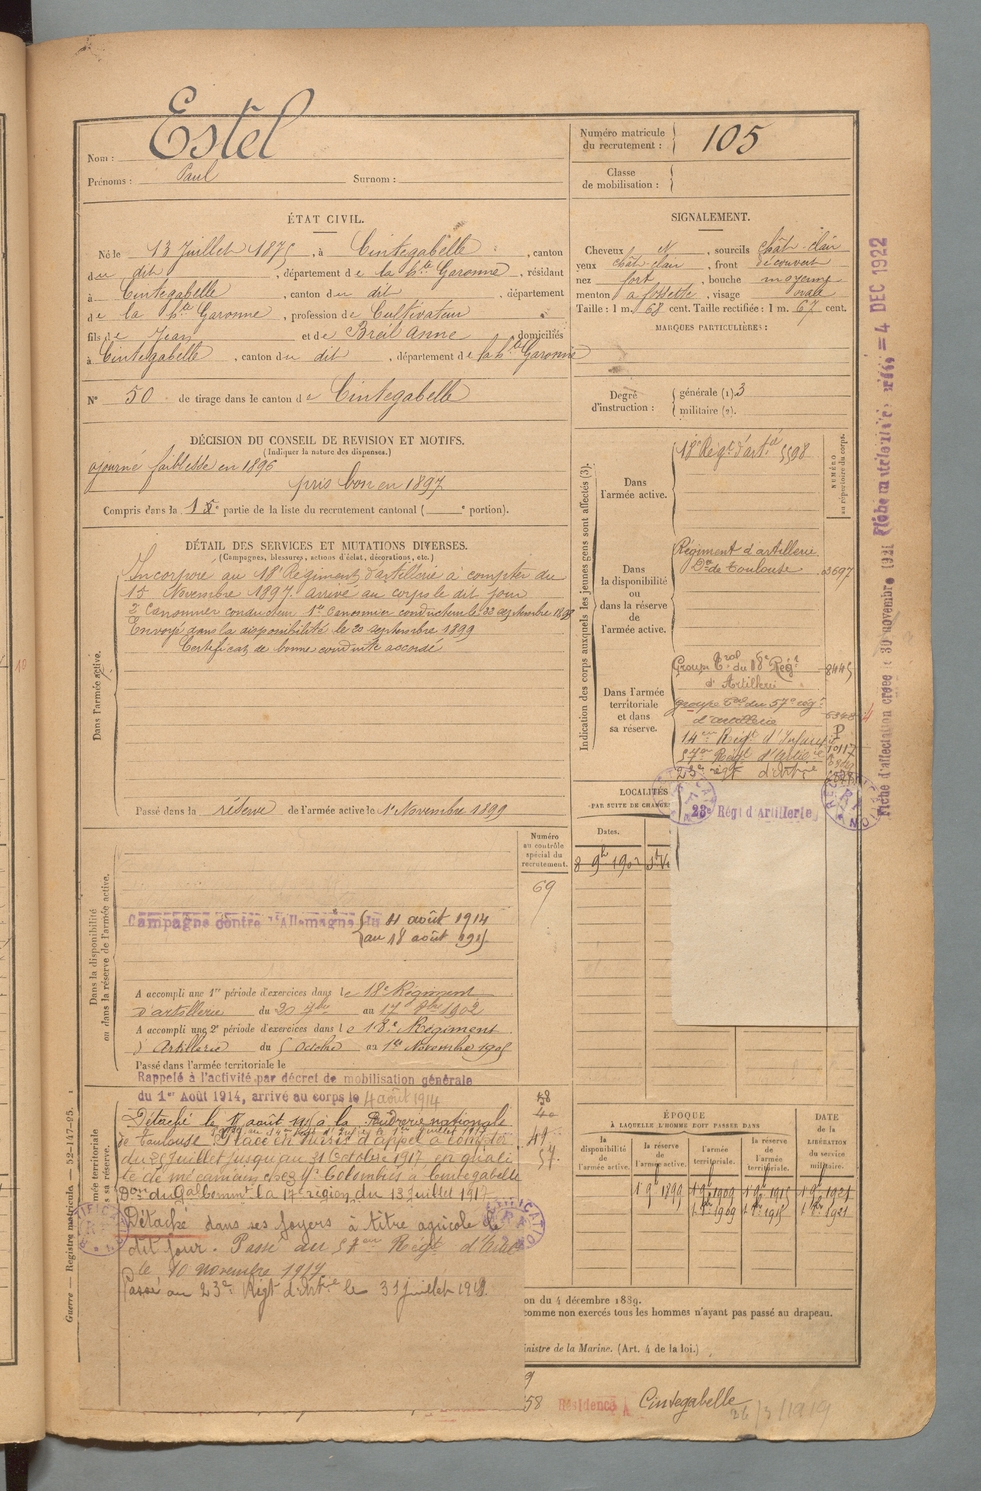 Nom : Estel
Prénoms : Paul Surnom :
Numéro matricule du recrutement : 105
Classe de mobilisation :
ÉTAT CIVIL.
Né le 13 Juillet 1875, à Cintegabelle, canton
du dit, département de la hte Garonne, résidant
à Cintegabelle, canton du dit, département
de la hte Garonne, profession de Cultivateur
fils de Jean et de Breil Anne domiciliés
à Cintegabelle, canton du dit, département de la hte Garonne
N° 50 de tirage dans le canton de Cintegabelle
SIGNALEMENT.
Cheveux N, sourcils chât-clair
yeux chât-clair, front découvert
nez fort, bouche moyenne
menton à fossette, visage ovale
Taille : 1 m. 68 cent. Taille rectifiée : 1 m. 67 cent.
MARQUES PARTICULIÈRES :
Degré d'instruction : générale (1) 3
militaire (2).
DÉCISION DU CONSEIL DE REVISION ET MOTIFS.
(Indiquer la nature des dispenses.)
ajourné faiblesse en 1896
pris bon en 1897
Compris dans la 1e partie de la liste du recrutement cantonal ( e portion).
DÉTAIL DES SERVICES ET MUTATIONS DIVERSES.
(Campagnes, blessures, actions d'éclat, décorations, etc.)
Dans l'armée active.
Incorporé au 18e Régiment d'artillerie à compter du
15 Novembre 1897. arrivé au corps le dit jour
2e Canonnier conducteur 1er Canonnier conducteur le 22 septembre 1898
Envoyé dans la disponibilité le 20 septembre 1899
Certificat de bonne conduite accordé
Passé dans la réserve de l'armée active le 1er Novembre 1899
Indication des corps auxquels les jeunes gens sont affectés (3).
NUMÉRO au répertoire du corps.
Dans l'armée active.
18e Régt d'artie 5598
Dans la disponibilité ou dans la réserve de l'armée active.
Régiment d'artillerie
Don de Toulouse 3697
Dans l'armée territoriale et dans sa réserve.
Groupe Tral du 18e Régt 8445
d'Artillerie
groupe Tal du 57e régt
d'artillerie
14e Régt d'Infanterie 10117
57e Régt d'Artie
23e régt d'artie
23e Régt d'Artillerie
LOCALITÉS
PAR SUITE DE CHANGE
Dates.
8 9bre 1902
Dans la disponibilité ou dans la réserve de l'armée active.
Numéro au contrôle spécial du recrutement.
69
Campagne contre l'Allemagne du 4 août 1914
au 18 août 1915
A accompli une 1re période d'exercices dans le 18e Régiment
d'artillerie du 20 7bre au 17 8bre 1902
A accompli une 2e période d'exercices dans le 18e Régiment
d'Artillerie du 5 Octobre au 1er Novembre 1905
Passé dans l'armée territoriale le
Rappelé à l'activité par décret de mobilisation générale
du 1er Août 1914, arrivé au corps le 4 août 1914
Détaché le 18 août 1915 à la Poudrerie nationale
de Toulouse. Placé en sursis d'appel à compter
du 25 Juillet jusqu'au 31 Octobre 1917 en quali
té de mécanicien chez Mr Colombiès à Cintegabelle
Don du Gal Comant la 17e région du 13 Juillet 1917
Détaché dans ses foyers à titre agricole le
dit jour. Passé au 57e Régt d'Artie
le 10 novembre 1917
Passé au 23e Régt d'artie le 31 juillet 1918.
ÉPOQUE
À LAQUELLE L'HOMME DOIT PASSER DANS
la disponibilité de l'armée active.
la réserve de l'armée active.
l'armée territoriale.
la réserve de l'armée territoriale.
DATE de la LIBÉRATION du service militaire.
1 9bre 1899 1 9bre 1909 1 9bre 1915 1 9bre 1921
on du 4 décembre 1889.
comme non exercés tous les hommes n'ayant pas passé au drapeau.
inistre de la Marine. (Art. 4 de la loi.)
58 Résidence à Cintegabelle
26/3/1919
Guerre — Registre matricule. 52-147-25.
Fiche d'affectation créée le 30 novembre 1921 Fiche matriculaire créée = 4 DEC 1922